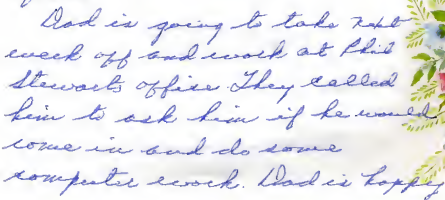 Dad is going to take next
week off and work at Phil
Stewarts office. They called
him to ask him if he would
come in and do some
computer work. Dad is happy